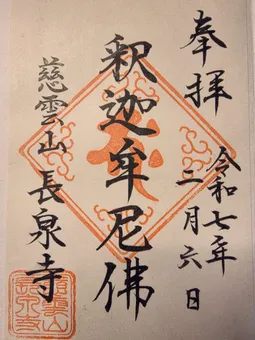 奉拝
令和七年
二月六日
釈迦牟尼佛
慈雲山
長泉寺